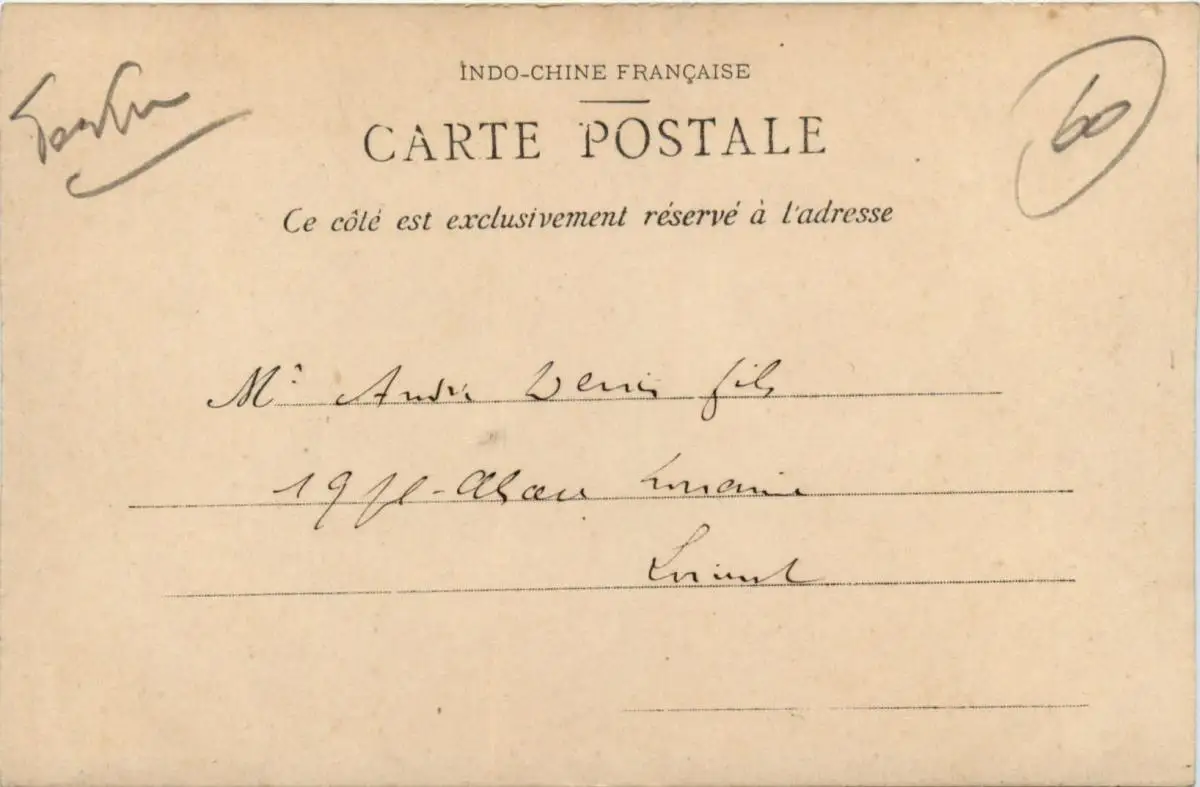 INDO-CHINE FRANÇAISE
CARTE POSTALE
60
Ce côté est exclusivement réservé à l'adresse
Mr André Denis fils
19 pl. Alsace Lorraine
Lorient